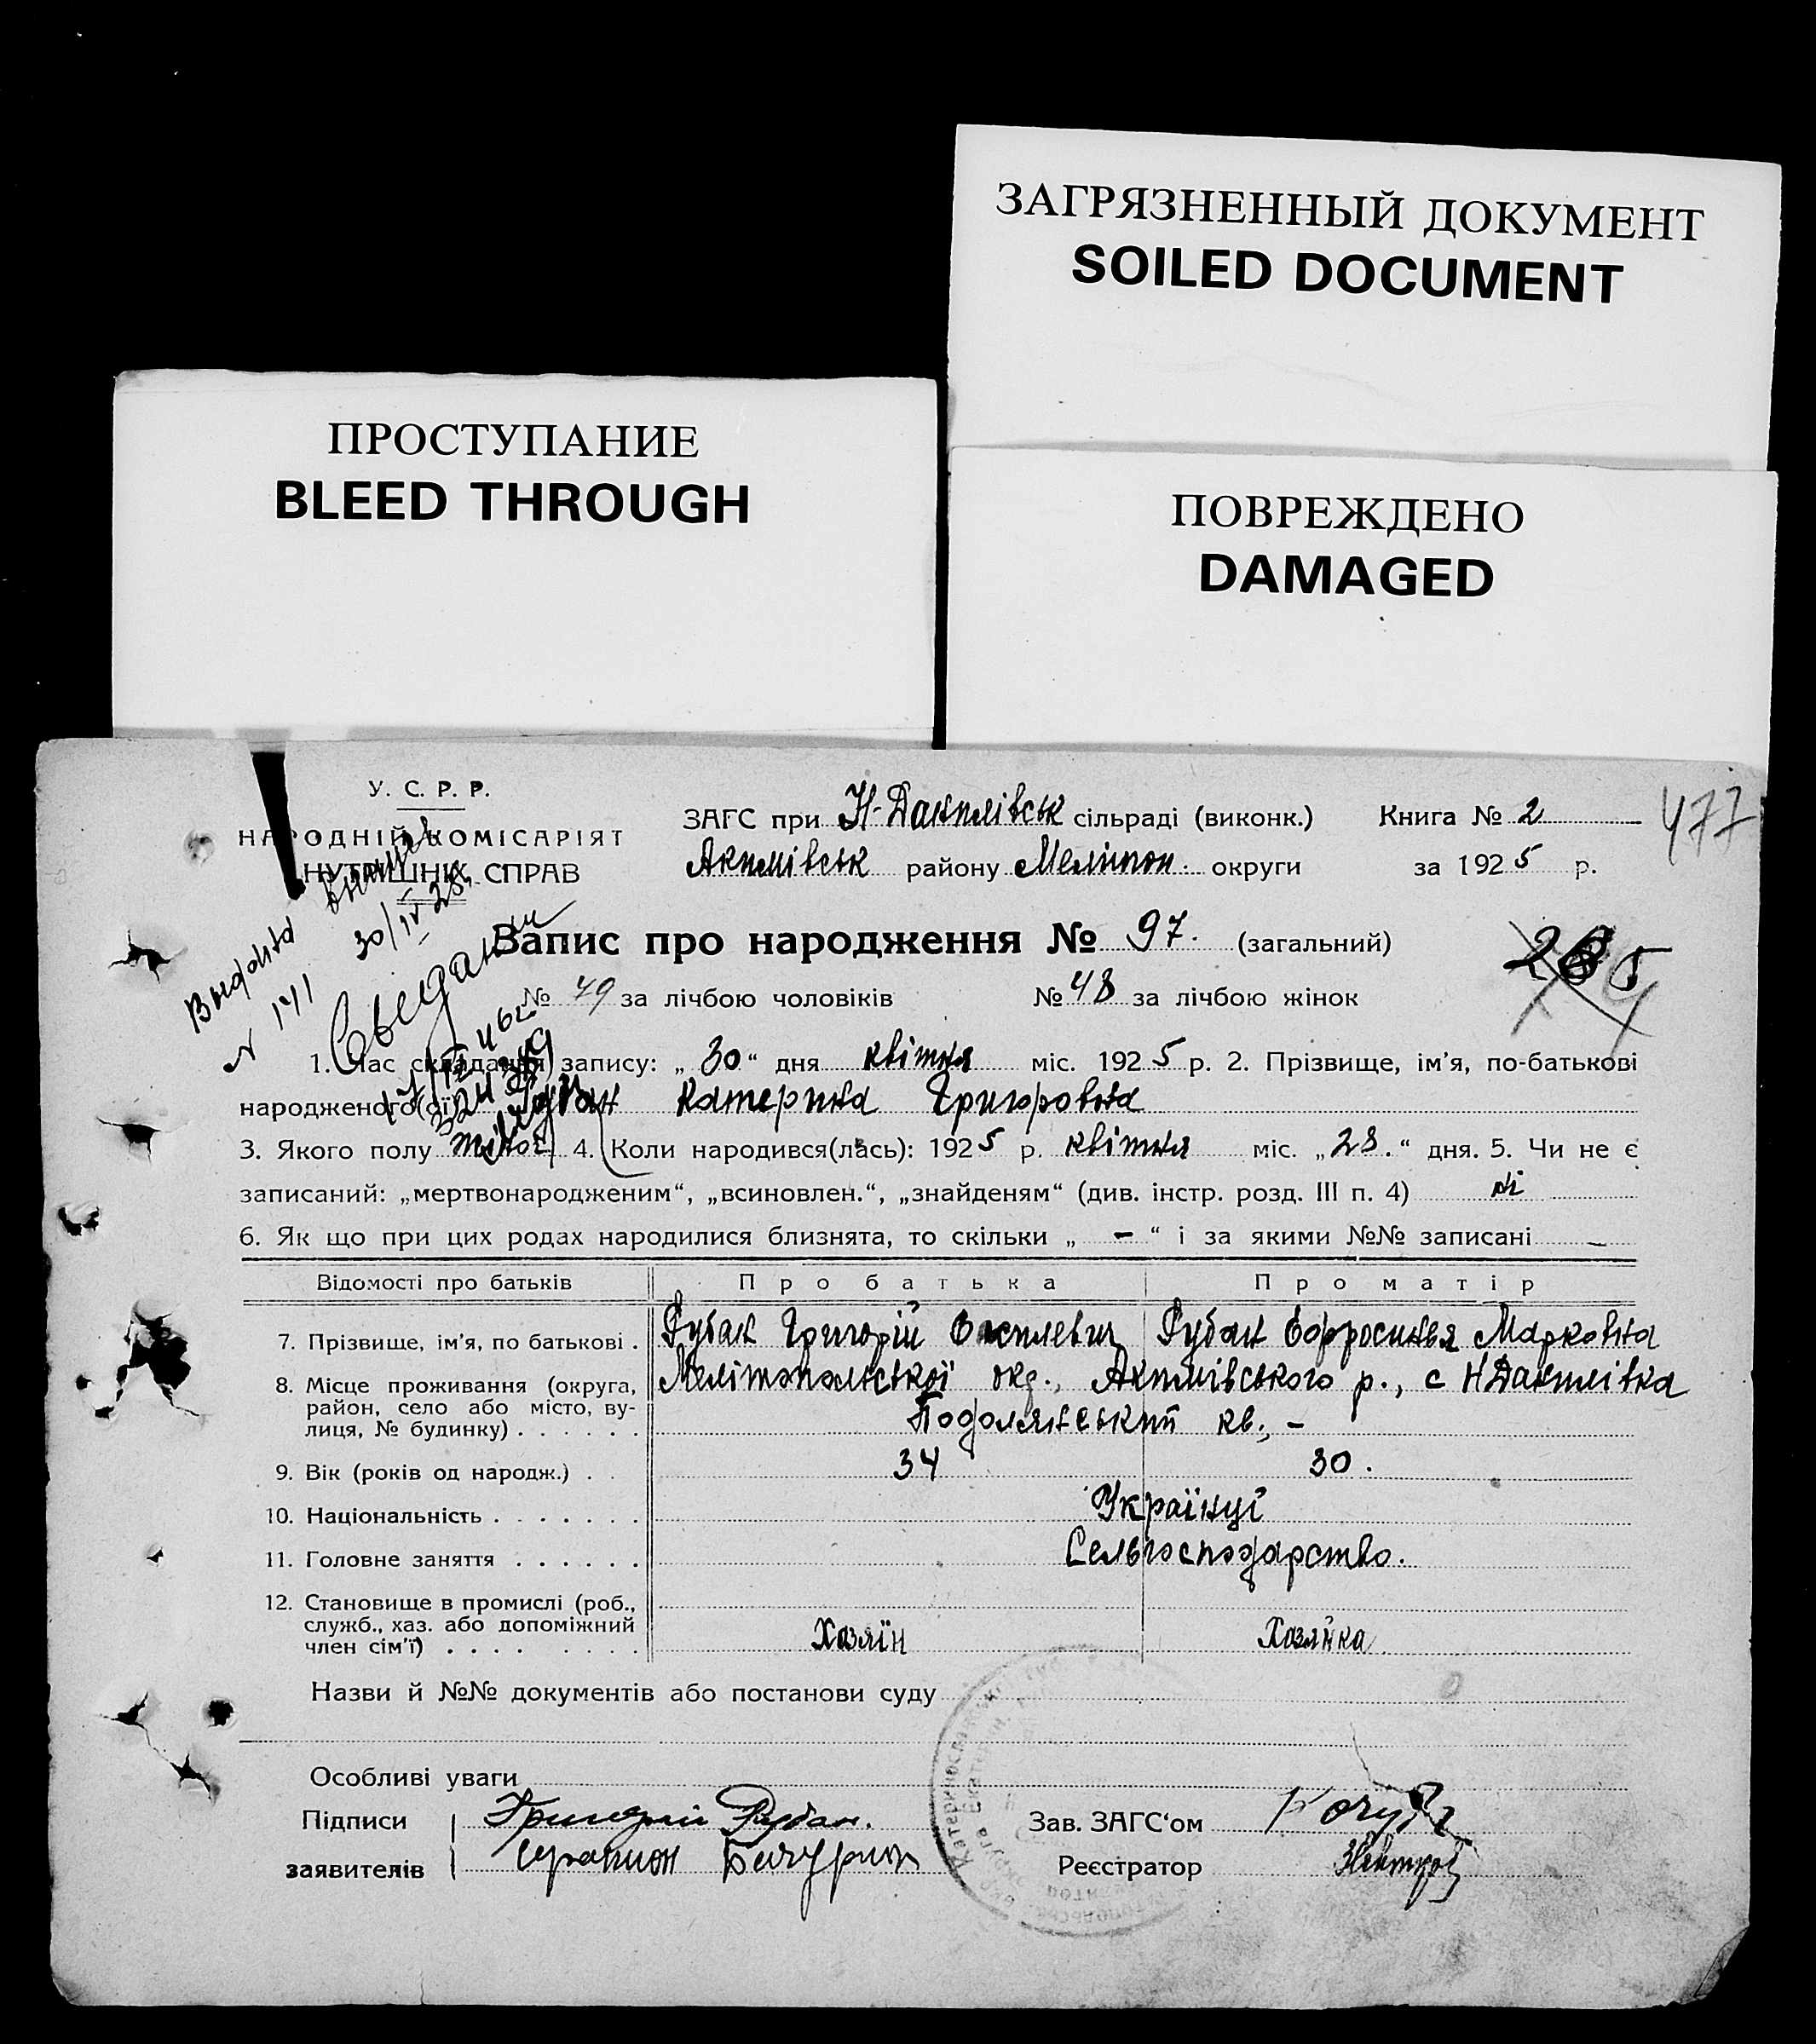 ЗАГРЯЗНЕННЫЙ ДОКУМЕНТ
SOILED DOCUMENT
ПРОСТУПАНИЕ
BLEED THROUGH
ПОВРЕЖДЕНО
DAMAGED
У. С. Р. Р.
НАРОДНІЙ КОМІСАРІЯТ
НУТРІШНІХ СПРАВ
ЗАГС при Н-Данилівськ сільраді (виконк.) Книга № 2
477
Акимівськ району Меліпол. округи за 1925 р.
Выдана
N 141 30/IV 25.
Запис про народження № 97. (загальний)
№ 49 за лічбою чоловіків № 48 за лічбою жінок
1. Час складання запису: „30“ дня квітня міс. 1925 р. 2. Прізвище, ім'я, по-батькові
народженого(ої) Рубан Катерина Григоровна
3. Якого полу жіноч. 4. Коли народився(лась): 1925 р. квітня міс. „28.“ дня. 5. Чи не є
записаний: „мертвонародженим“, „всиновлен.“, „знайденям“ (див. інстр. розд. III п. 4) ні
6. Як що при цих родах народилися близнята, то скільки „ – “ і за якими №№ записані –
Відомості про батьків Про батька Про матір
7. Прізвище, ім'я, по батькові . Рубан Григорій Василевич Рубан Єфросинья Марковна
8. Місце проживання (округа, район, село або місто, ву- лиця, № будинку) . . . . . . Мелітопольської окр., Акимівського р., с Н Данилівка
Подолянський кв., –
9. Вік (років од народж.) . . 34 30.
10. Національність . . . . . . . Українці
11. Головне заняття . . . . . . Сельгосподарство.
12. Становище в промислі (роб.,
служб., хаз. або допоміжний
член сім'ї) . . . . . . . . Хазяїн Хазяйка
Назви й №№ документів або постанови суду
Особливі уваги
Підписи Григорий Рубан. Зав. ЗАГС'ом
заявителів Реєстратор